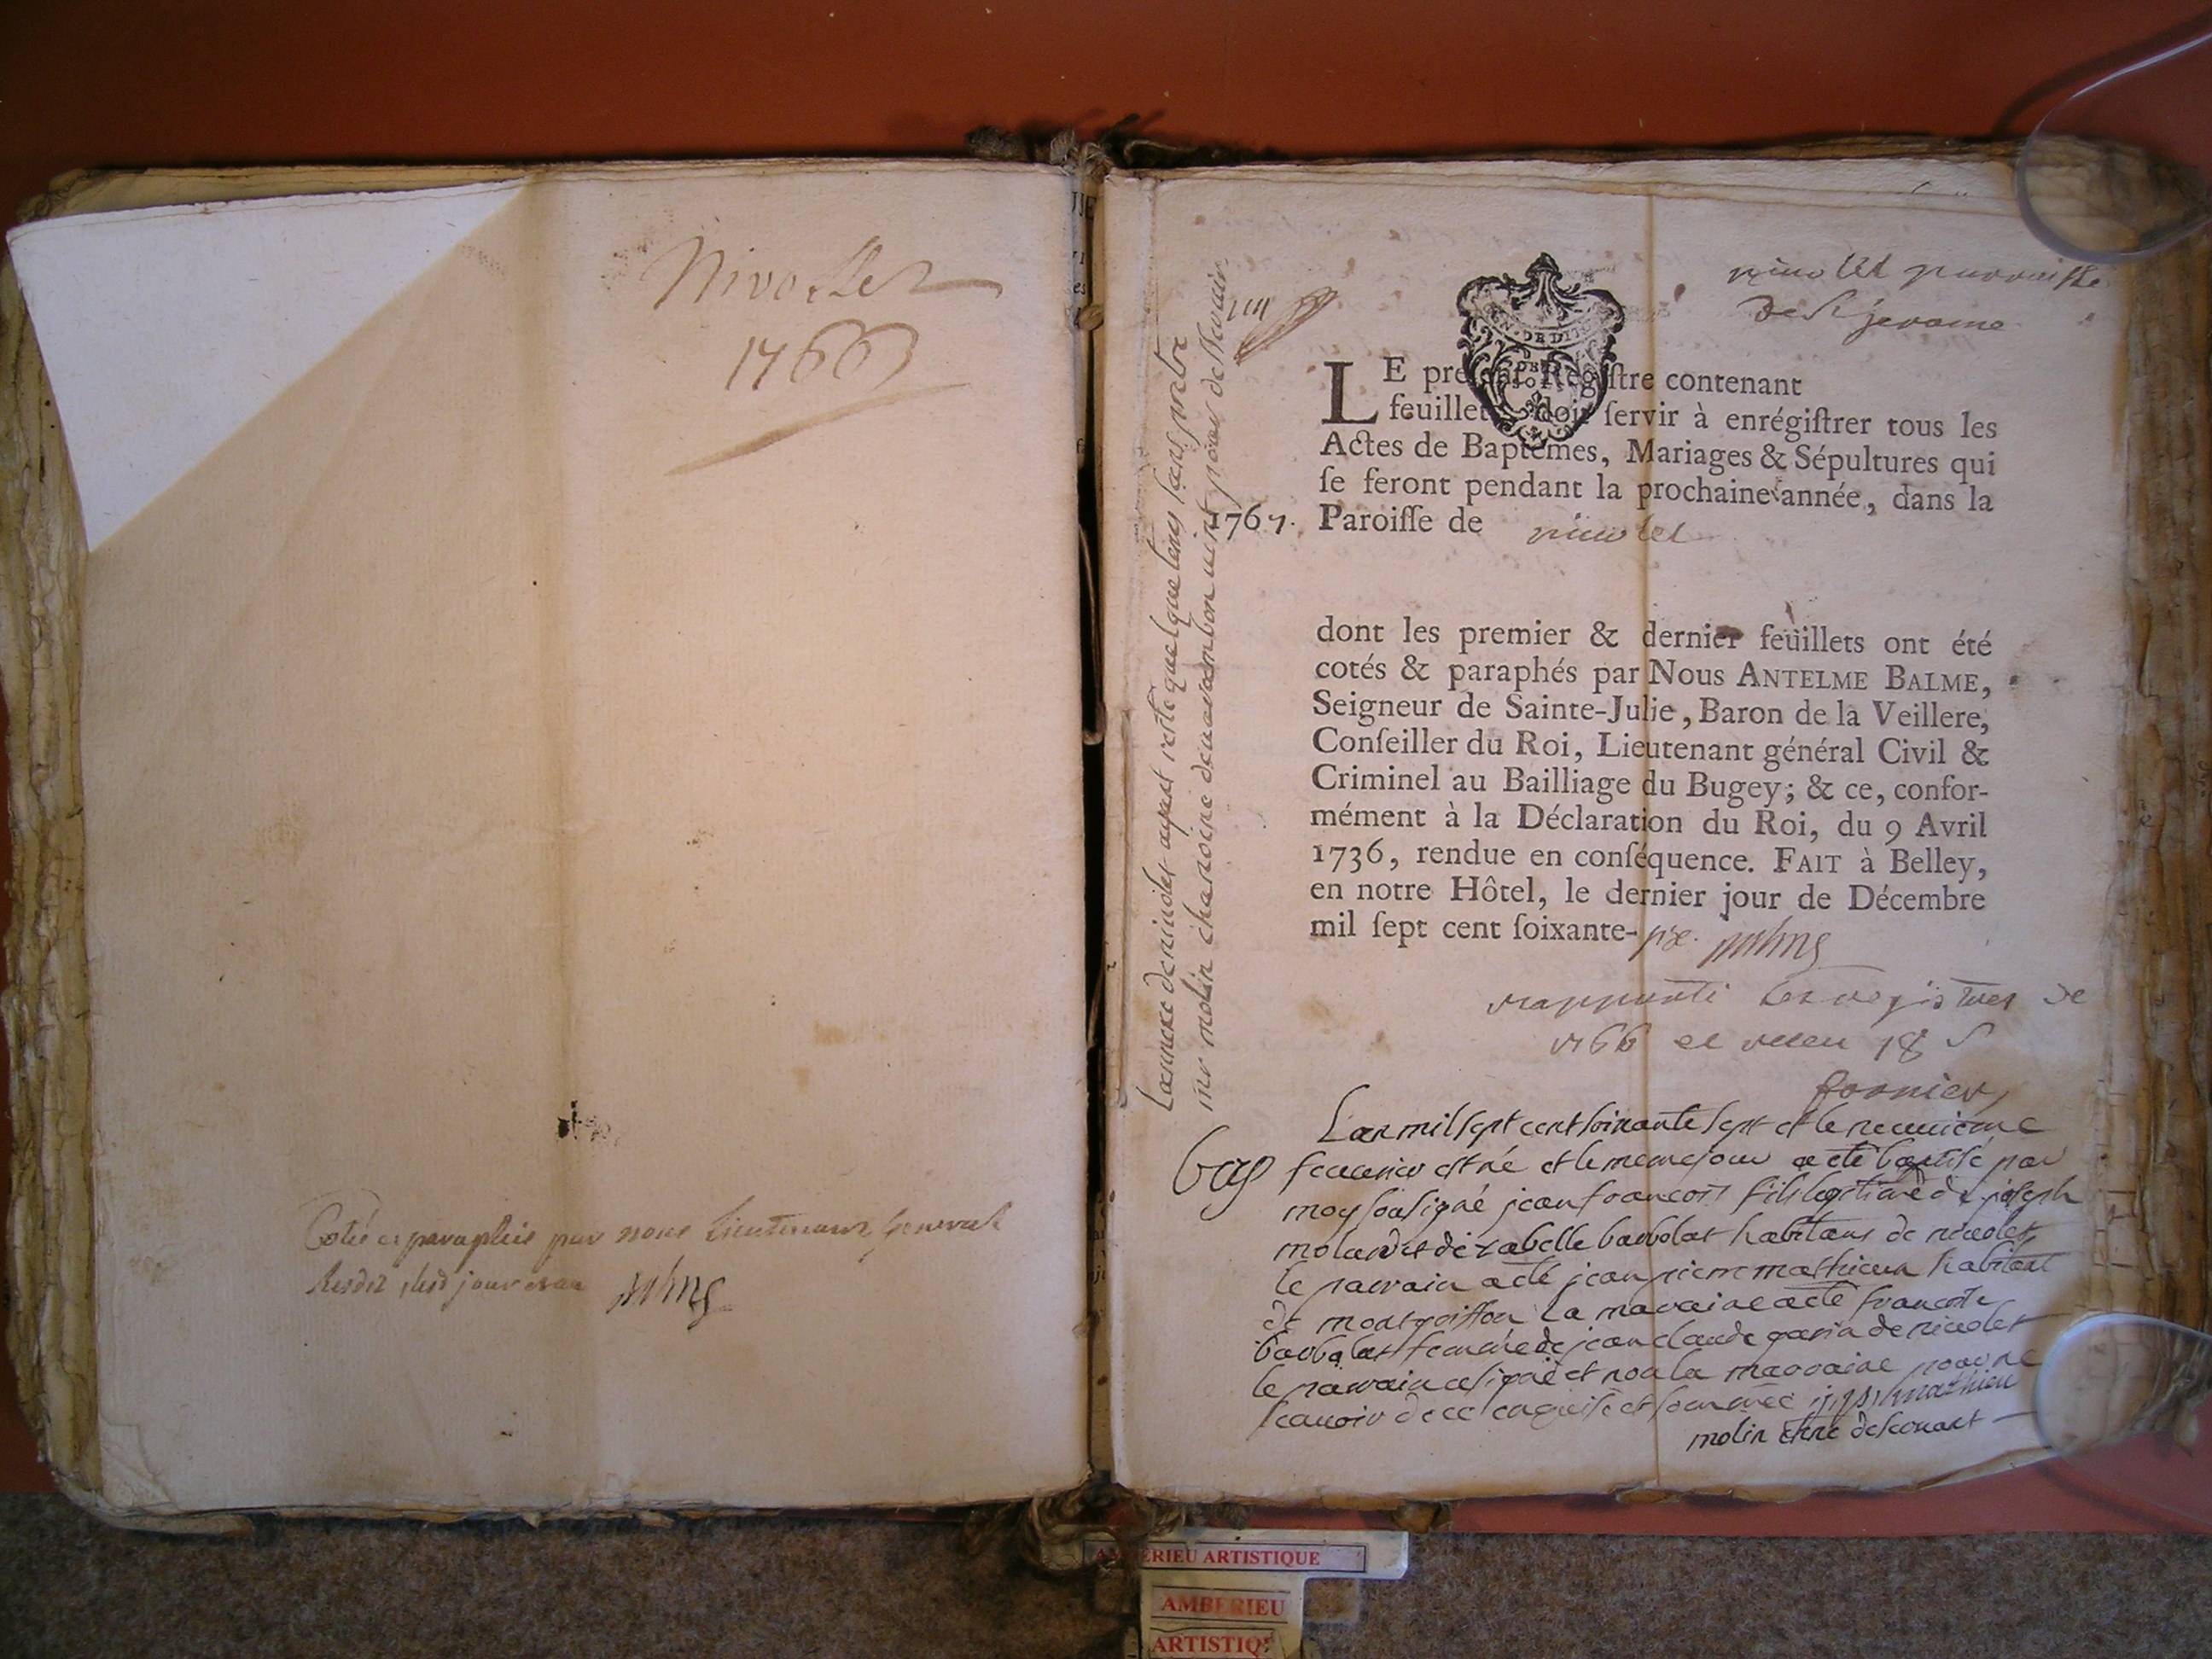 Nivollet
1766
Cotté et paraphée par nous Lieutenant General
susdit, lesd jour et an Balme
L'annexe de nivolet ayant resté quelque tems sans pretre
mr molin chanoine de varambon vint pour de Nevrain
nivollet parroisse
de St jerome
GEN. DE DIJ
LE present Regiſtre contenant
feuillets doit ſervir à enrégiſtrer tous les
Actes de Baptêmes, Mariages & Sépultures qui
ſe feront pendant la prochaine année, dans la
1767. Paroiſſe de nivollet
dont les premier & dernier feuillets ont été
cotés & paraphés par Nous ANTELME BALME,
Seigneur de Sainte-Julie, Baron de la Veillere,
Conſeiller du Roi, Lieutenant général Civil &
Criminel au Bailliage du Bugey; & ce, confor-
mément à la Déclaration du Roi, du 9 Avril
1736, rendue en conſéquence. FAIT à Belley,
en notre Hôtel, le dernier jour de Décembre
mil ſept cent ſoixante-six. Balme
rapporté les registres de
1766 et receu 18 s
fornier
L'an mil sept cent soixante sept et le neuvieme
bap fevrier est né et le meme jour a été baptisé par
moy sousigné jean francois fils legitime de joseph
molard et de isabelle barbolat habitans de nivolet
le parrain a été jean pierre mathieu habitant
de montgriffon la maraine a été francoise
barbolat femme de jean claude garin de nivolet
le parrain a signé et non la marraine pour ne
scavoir de ce enquise et sommée j p mathieu
molin ptre deservant
AMBERIEU ARTISTIQUE
AMBERIEU
ARTISTIQ